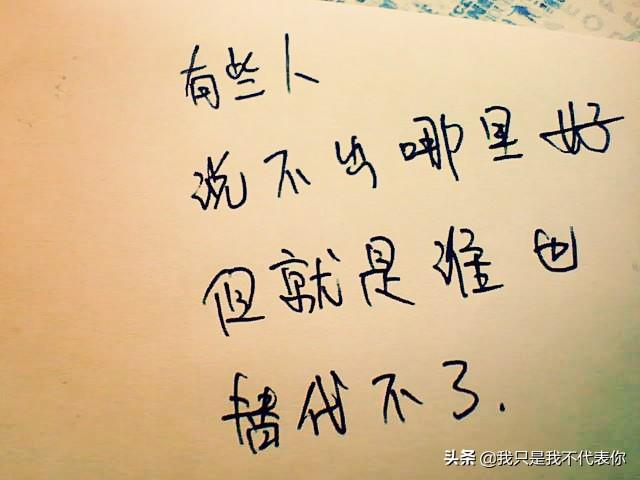 有些人
说不出哪里好
但就是谁也
替代不了.
头条 @我只是我不代表你